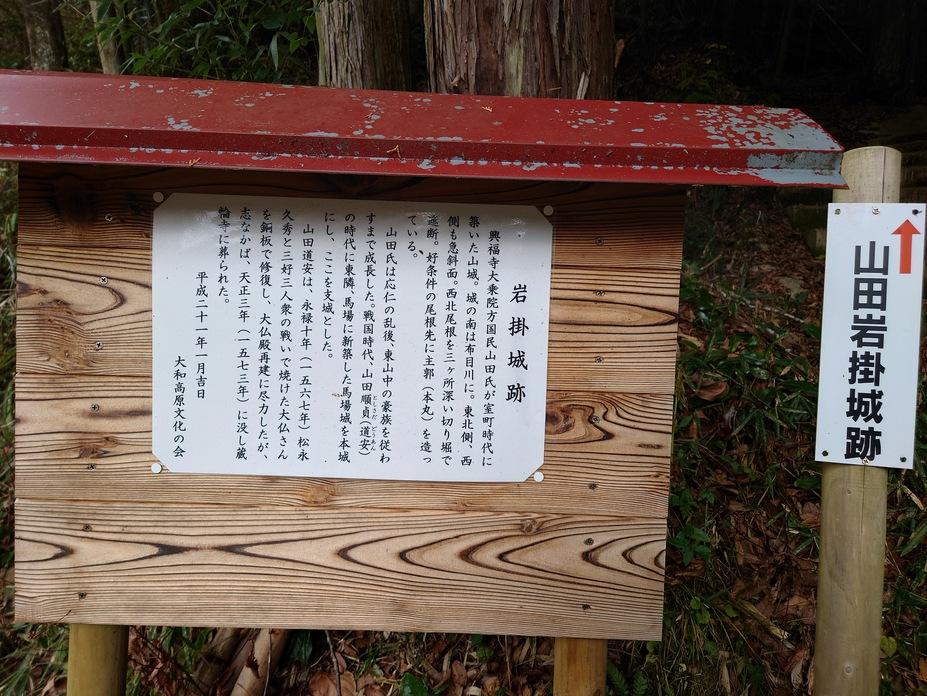 岩掛城跡
興福寺大乗院方国民山田氏が室町時代に
築いた山城。城の南は布目川に。東北側、西
側も急斜面。西北尾根を三ヶ所深い切り堀で
遮断。好条件の尾根先に主郭（本丸）を造っ
ている。
山田氏は応仁の乱後、東山中の豪族を従わ
すまで成長した。戦国時代、山田順貞（道安）
じゅんさだ どうあん
の時代に東隣、馬場に新築した馬場城を本城
にし、ここを支城とした。
山田道安は、永禄十年（一五六七年）松永
久秀と三好三人衆の戦いで焼けた大仏さん
を銅板で修復し、大仏殿再建に尽力したが、
志なかば、天正三年（一五七三年）に没し蔵
輪寺に葬られた。
平成二十一年一月吉日
大和高原文化の会
山田岩掛城跡